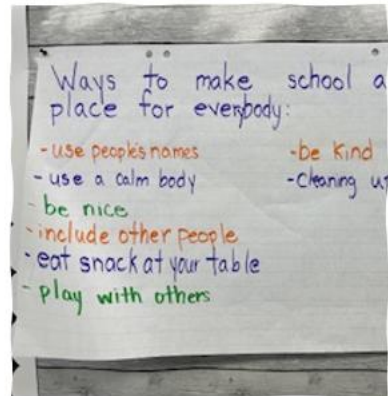 Ways to make school a
place for everybody:
-use people's names
-use a calm body
-be nice
-include other people
-eat snack at your table
-play with others
-be kind
-Cleaning